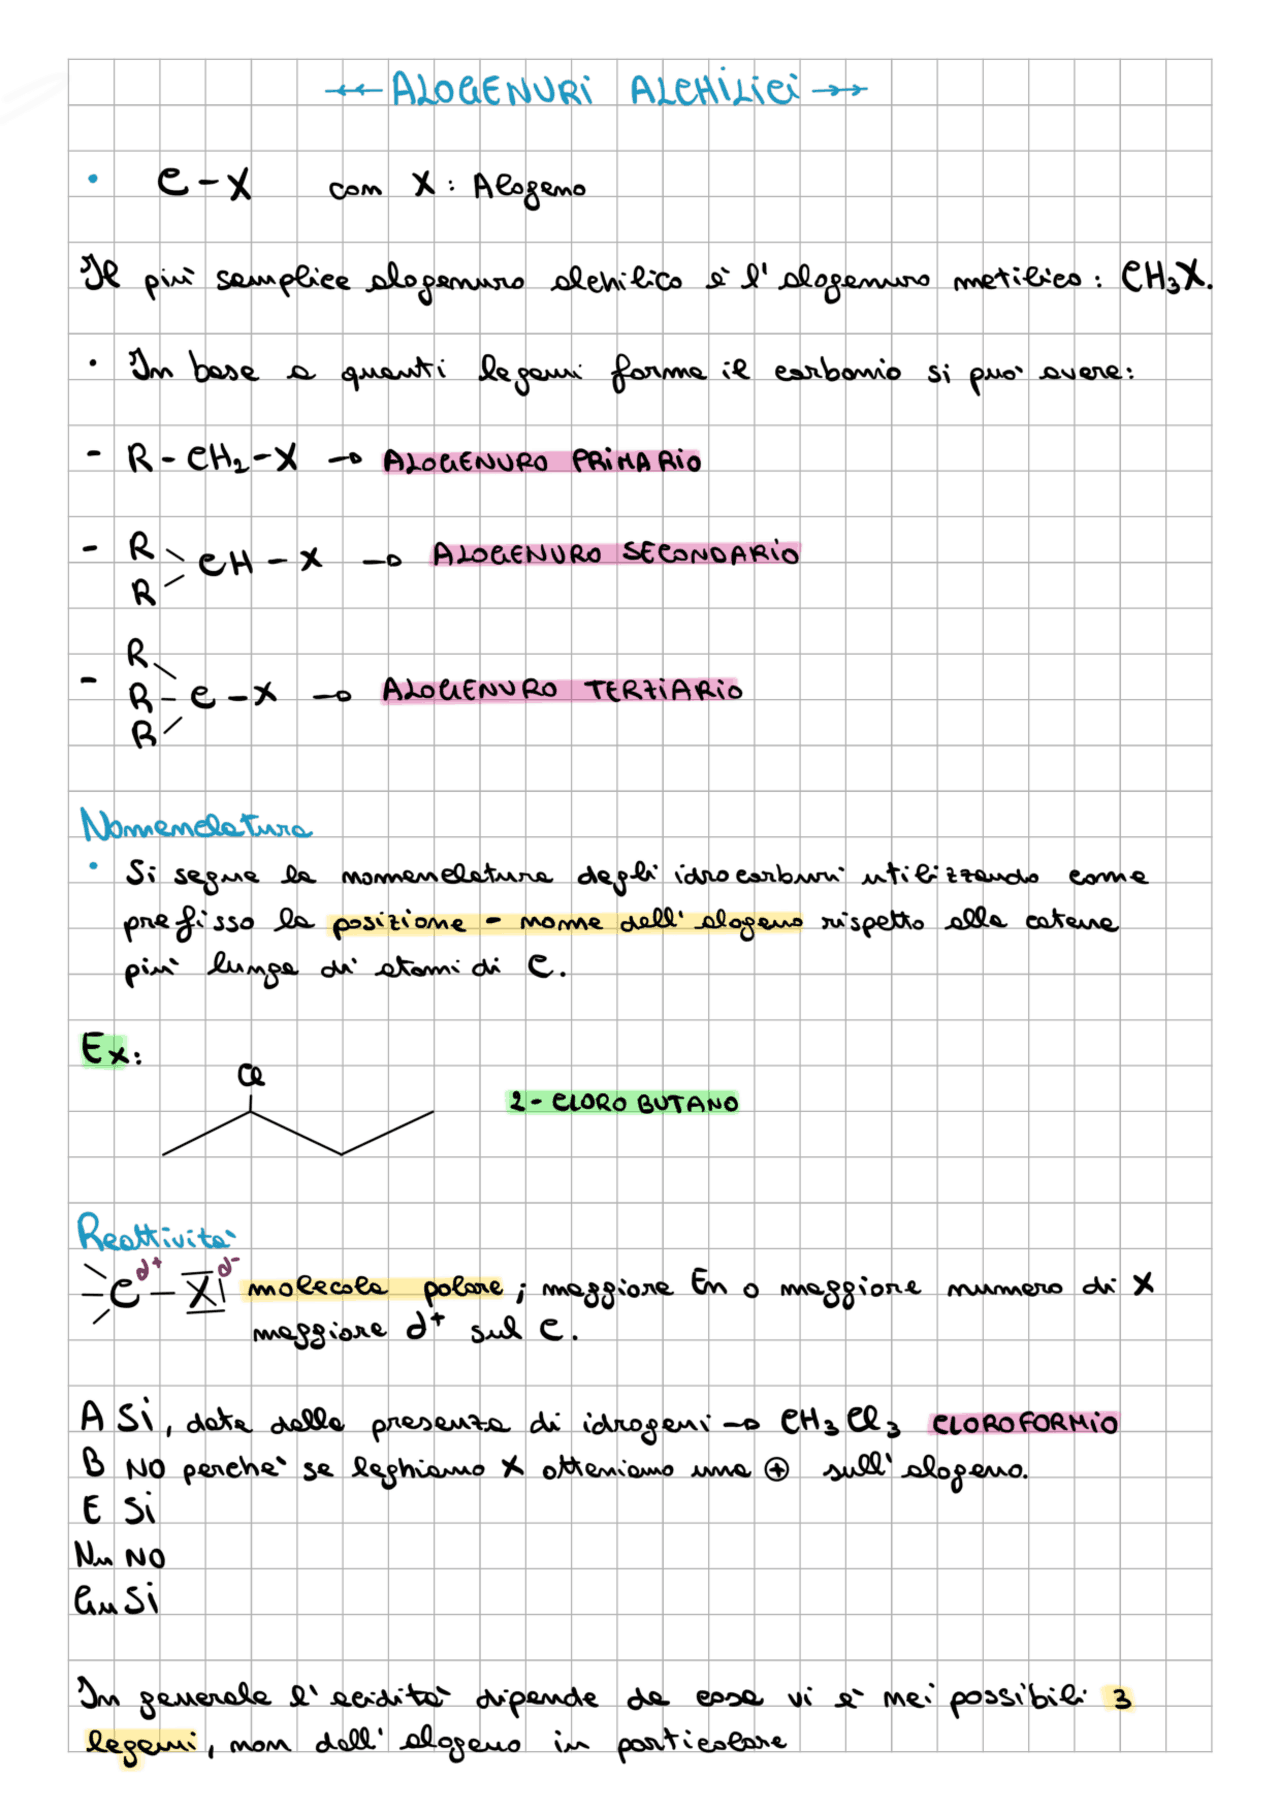 ALOGENURI ALCHILICI
• C-X con X: Alogeno
Il più semplice alogenuro alchilico è l'alogenuro metilico: CH₃X.
• In base a quanti legami forma il carbonio si può avere:
- R-CH₂-X → ALOGENURO PRIMARIO
- R
CH-X → ALOGENURO SECONDARIO
R
R
- R-C-X → ALOGENURO TERZIARIO
R
Nomenclatura
• Si segue la nomenclatura degli idrocarburi utilizzando come
prefisso la posizione - nome dell'alogeno rispetto alla catena
più lunga di atomi di C.
Ex:
Cl
2-CLORO BUTANO
Reattività
C d+ - X d- molecola polare; maggiore En o maggiore numero di X
maggiore d+ sul C.
A Sì, data dalla presenza di idrogeni → CH₃Cl₃ CLOROFORMIO
B NO perché se leghiamo X otteniamo una ⊕ sull'alogeno.
E Sì
Nu NO
Gu Sì
In generale l'acidità dipende da cosa vi è nei possibili 3
legami, non dall'alogeno in particolare